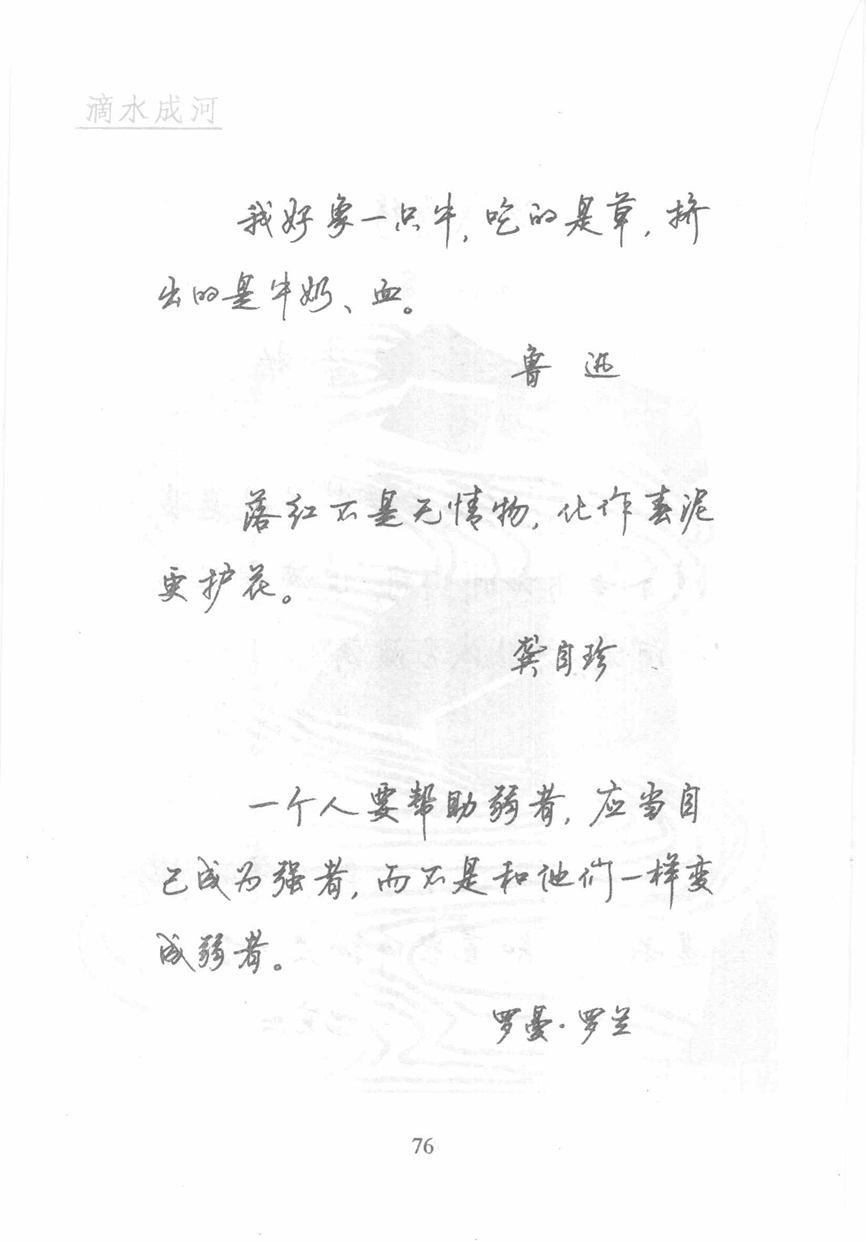 滴水成河
我好象一只牛,吃的是草,挤
出的是牛奶、血。
鲁 迅
落红不是无情物,化作春泥
更护花。
龚自珍
一个人要帮助弱者,应当自
己成为强者,而不是和他们一样变
成弱者。
罗曼·罗兰
76